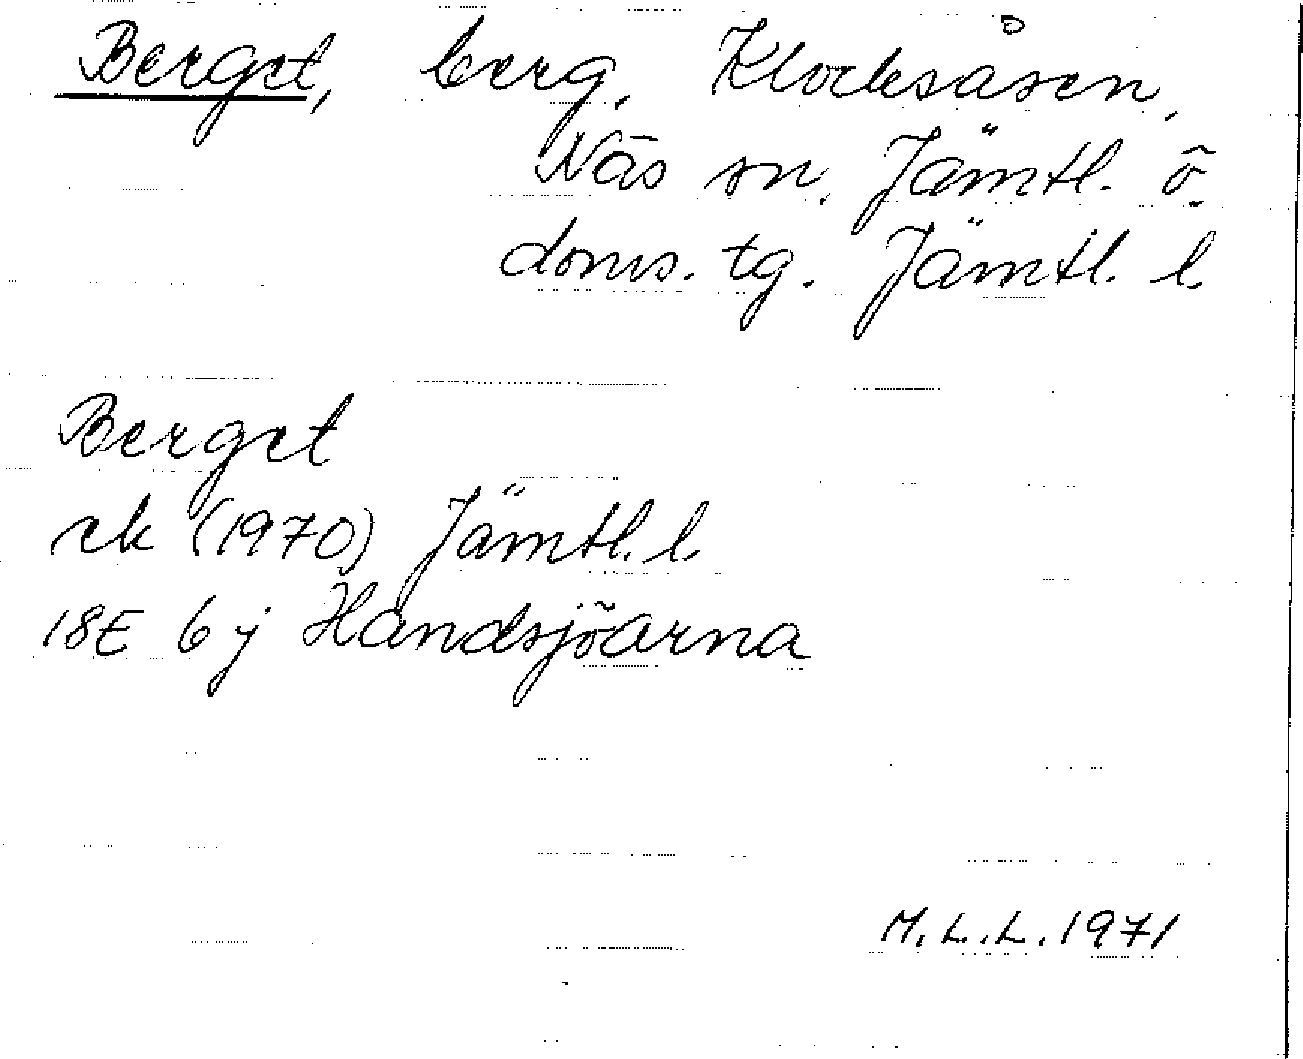 Berget, berg, Klocksåsen,
Näs sn. Jämtl. ö.
doms. tg. Jämtl. l.
Berget
ek (1970) Jämtl. l.
18E 6j Handsjöarna
M.L.L. 1971